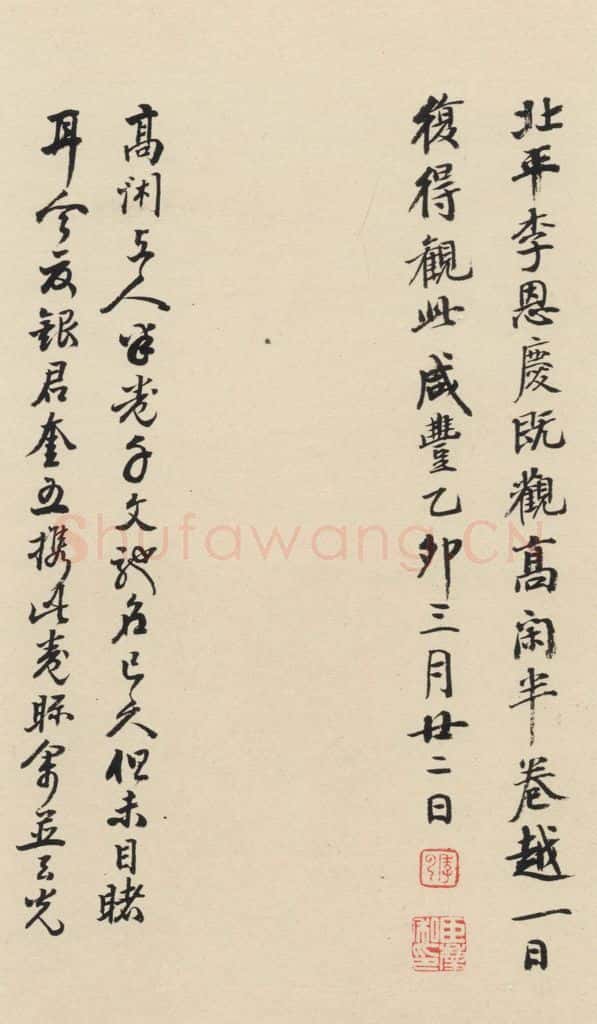 北平李恩慶既觀高闲半卷越一日
復得觀此咸豐乙卯三月廿二日
高闲上人半卷千文馳名已久但未目睹
耳今友銀君奎五携此卷眎余並云光
Shufawang.CN